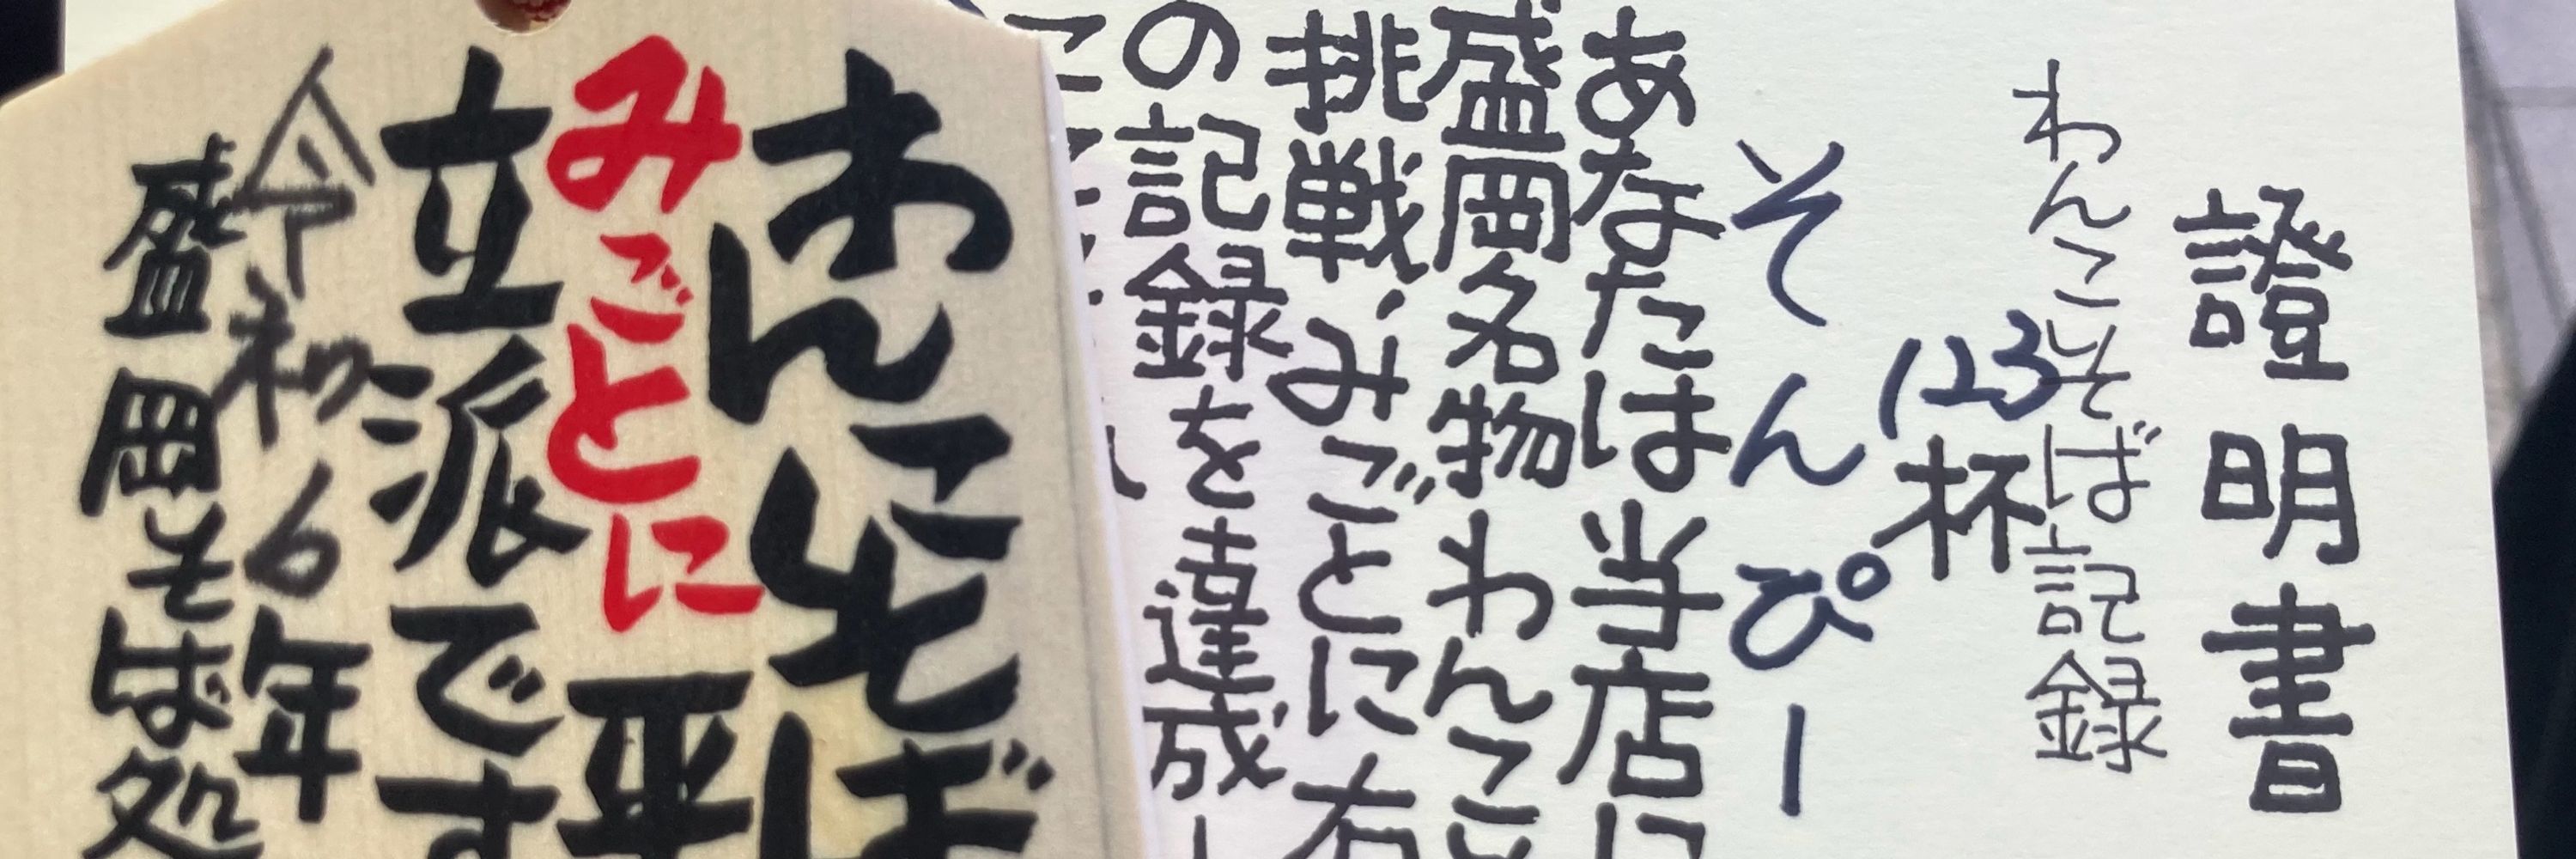 證明書
わんこそば記録
123杯
そんぴー
あなたは当店に
盛岡名物わんこ
挑戦、みごとに右
の記録を達成し
わんこそば
みごとに平
立派です
令和6年
盛岡そば処